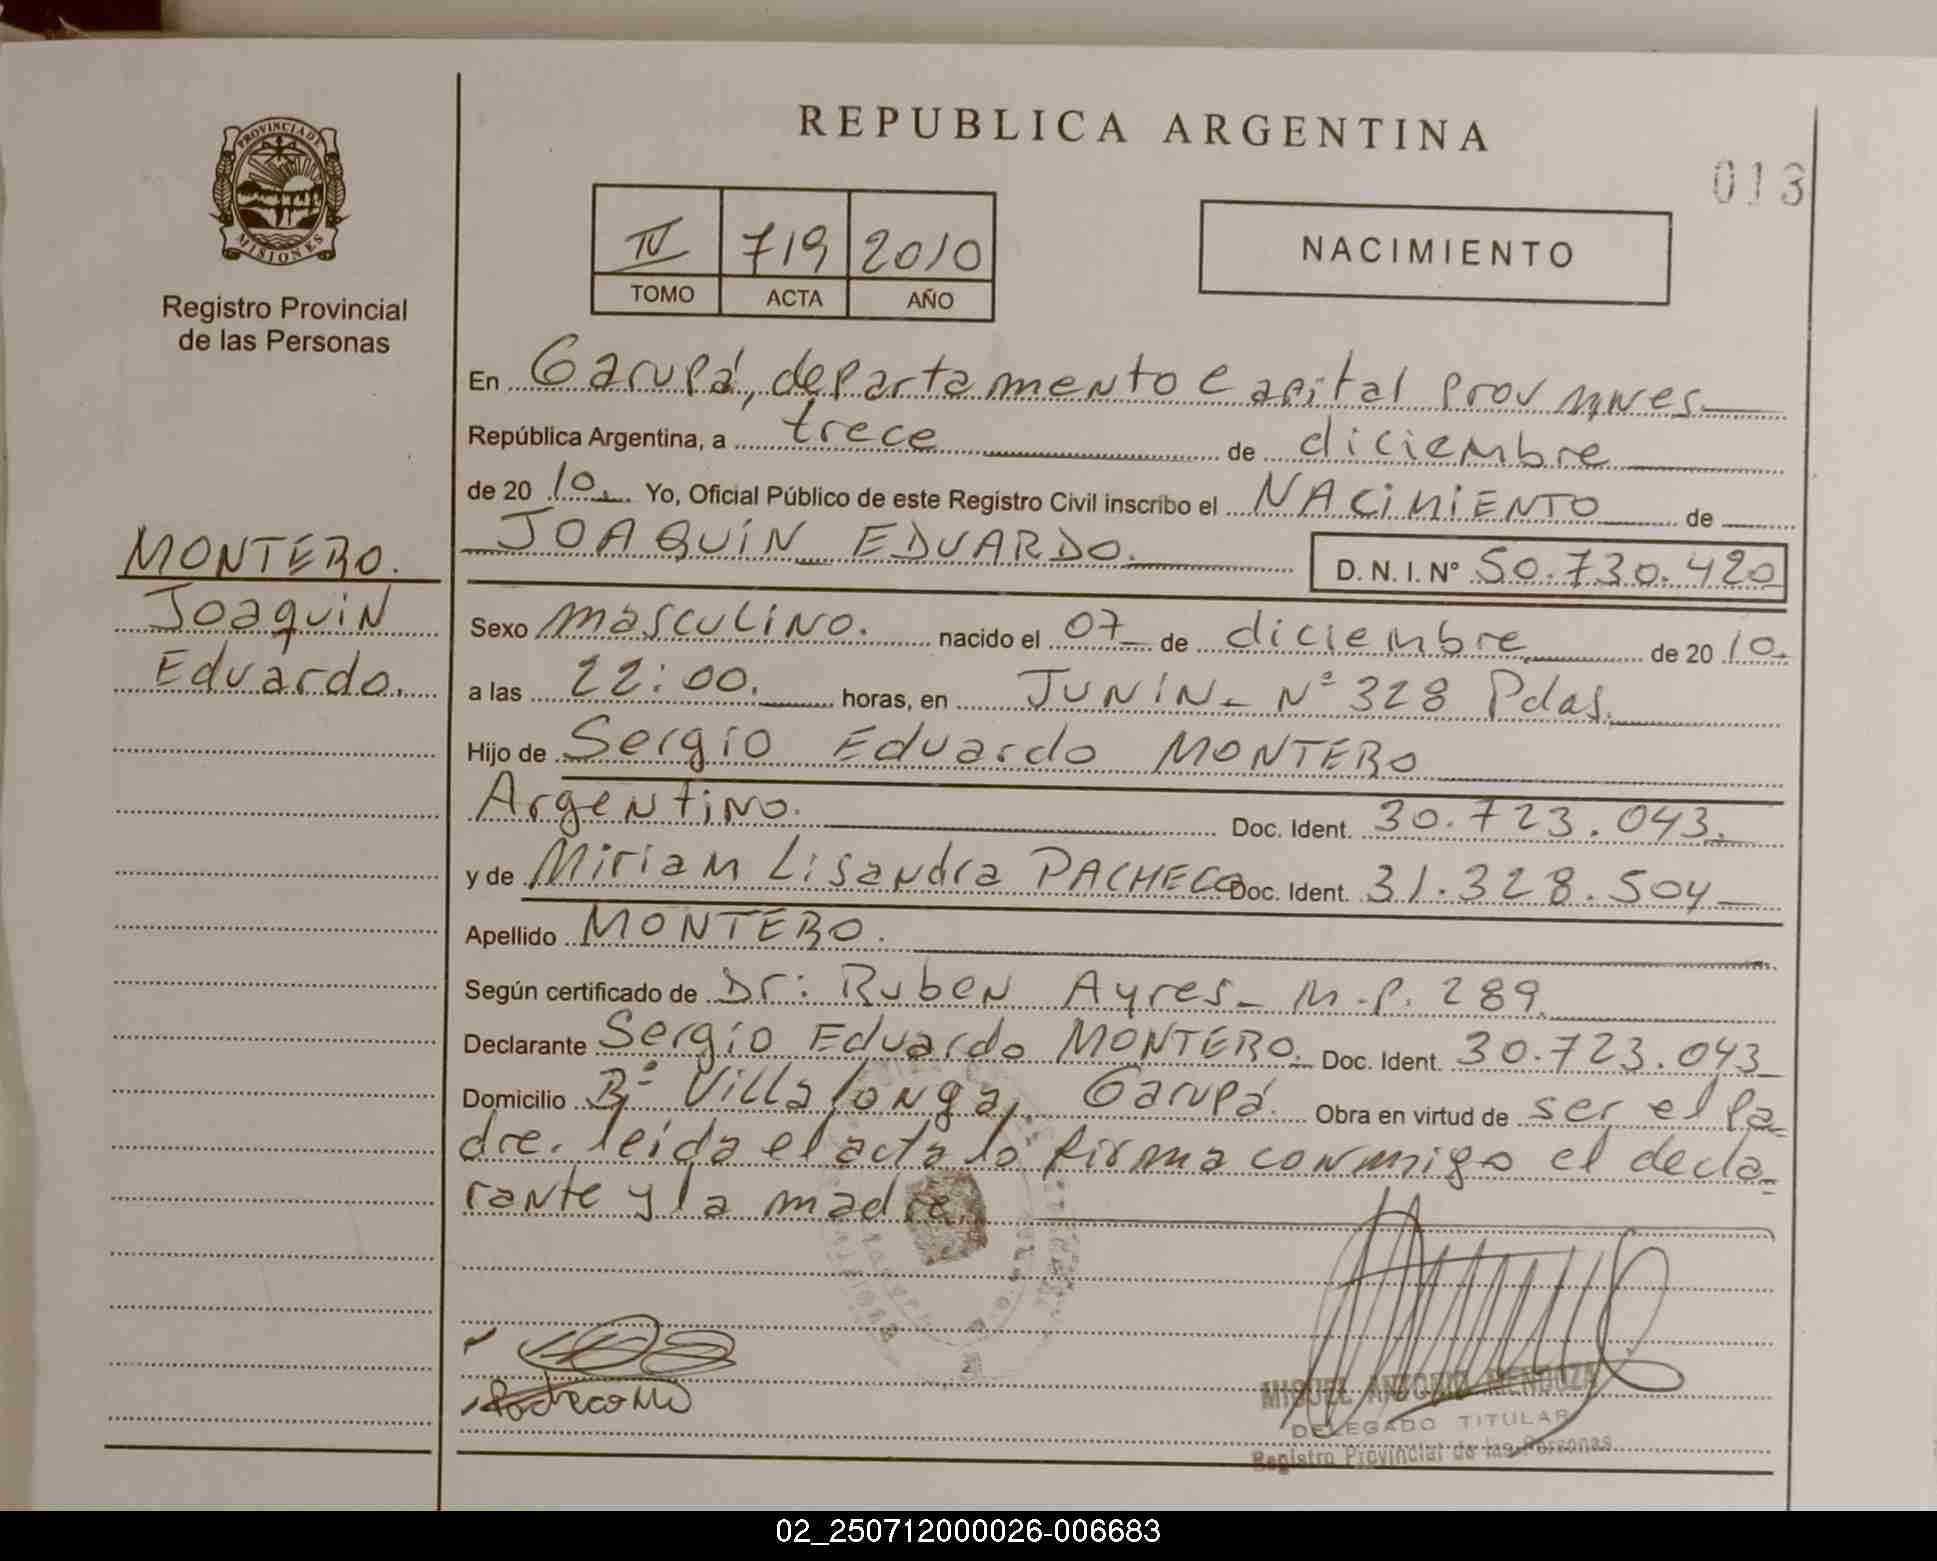 REPUBLICA ARGENTINA
013
PROVINCIA DE
MISIONES
Registro Provincial
de las Personas
IV 719 2010
TOMO ACTA AÑO
NACIMIENTO
En Garupá, departamento Capital prov mnes
República Argentina, a trece de diciembre
de 20 10. Yo, Oficial Público de este Registro Civil inscribo el NACIMIENTO de
JOAQUÍN EDUARDO. D. N. I. N° 50.730.420
MONTERO.
Joaquin
Eduardo.
Sexo masculino. nacido el 07 de diciembre de 20 10.
a las 22:00. horas, en JUNIN - N° 328 Pdas.
Hijo de Sergio Eduardo MONTERO
Argentino. Doc. Ident. 30.723.043.
y de Miriam Lisandra PACHECO Doc. Ident. 31.328.504
Apellido MONTERO.
Según certificado de Dr: Ruben Ayres - M.P. 289.
Declarante Sergio Eduardo MONTERO. Doc. Ident. 30.723.043
Domicilio B° Villalonga, Garupá. Obra en virtud de ser el pa-
dre. leida el acta lo firma conmigo el decla-
rante y la madre.
Pacheco M
MIGUEL ANTONIO MENDOZA
DELEGADO TITULAR
Registro Provincial de las Personas
02_250712000026-006683